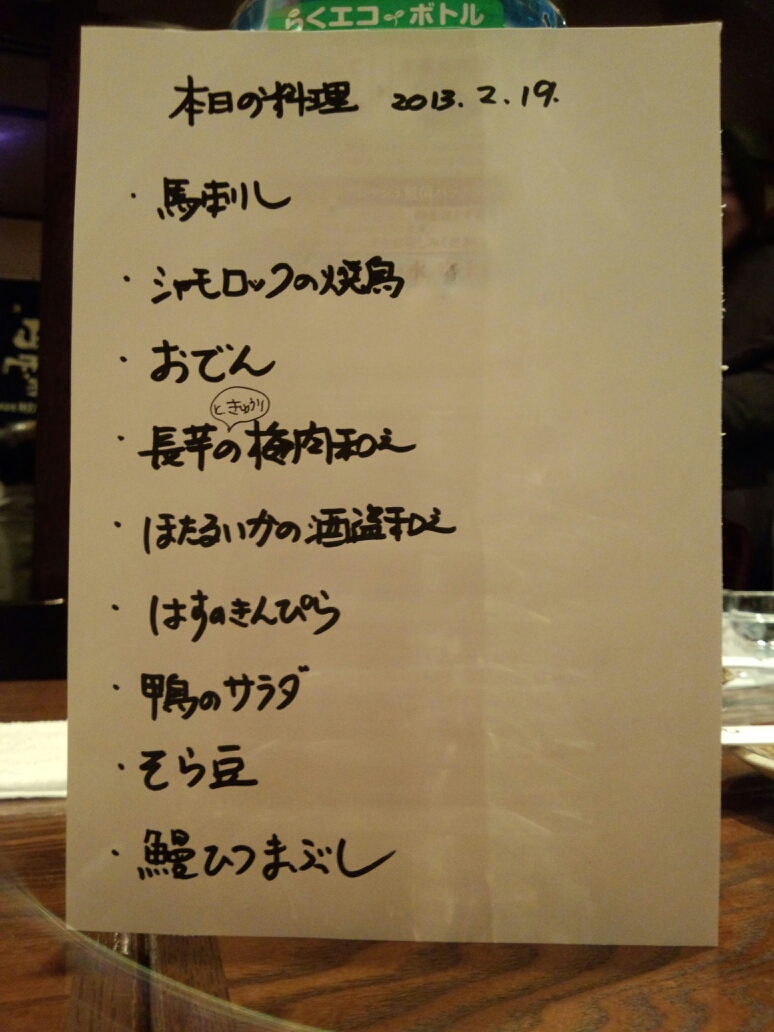 らくエコボトル
本日の料理 2013.2.19.
・馬刺し
・シャモロックの焼鳥
・おでん
ときゅうり
・長芋の梅肉和え
・ほたるいかの酒盗和え
・はすのきんぴら
・鴨のサラダ
・そら豆
・鰻ひつまぶし